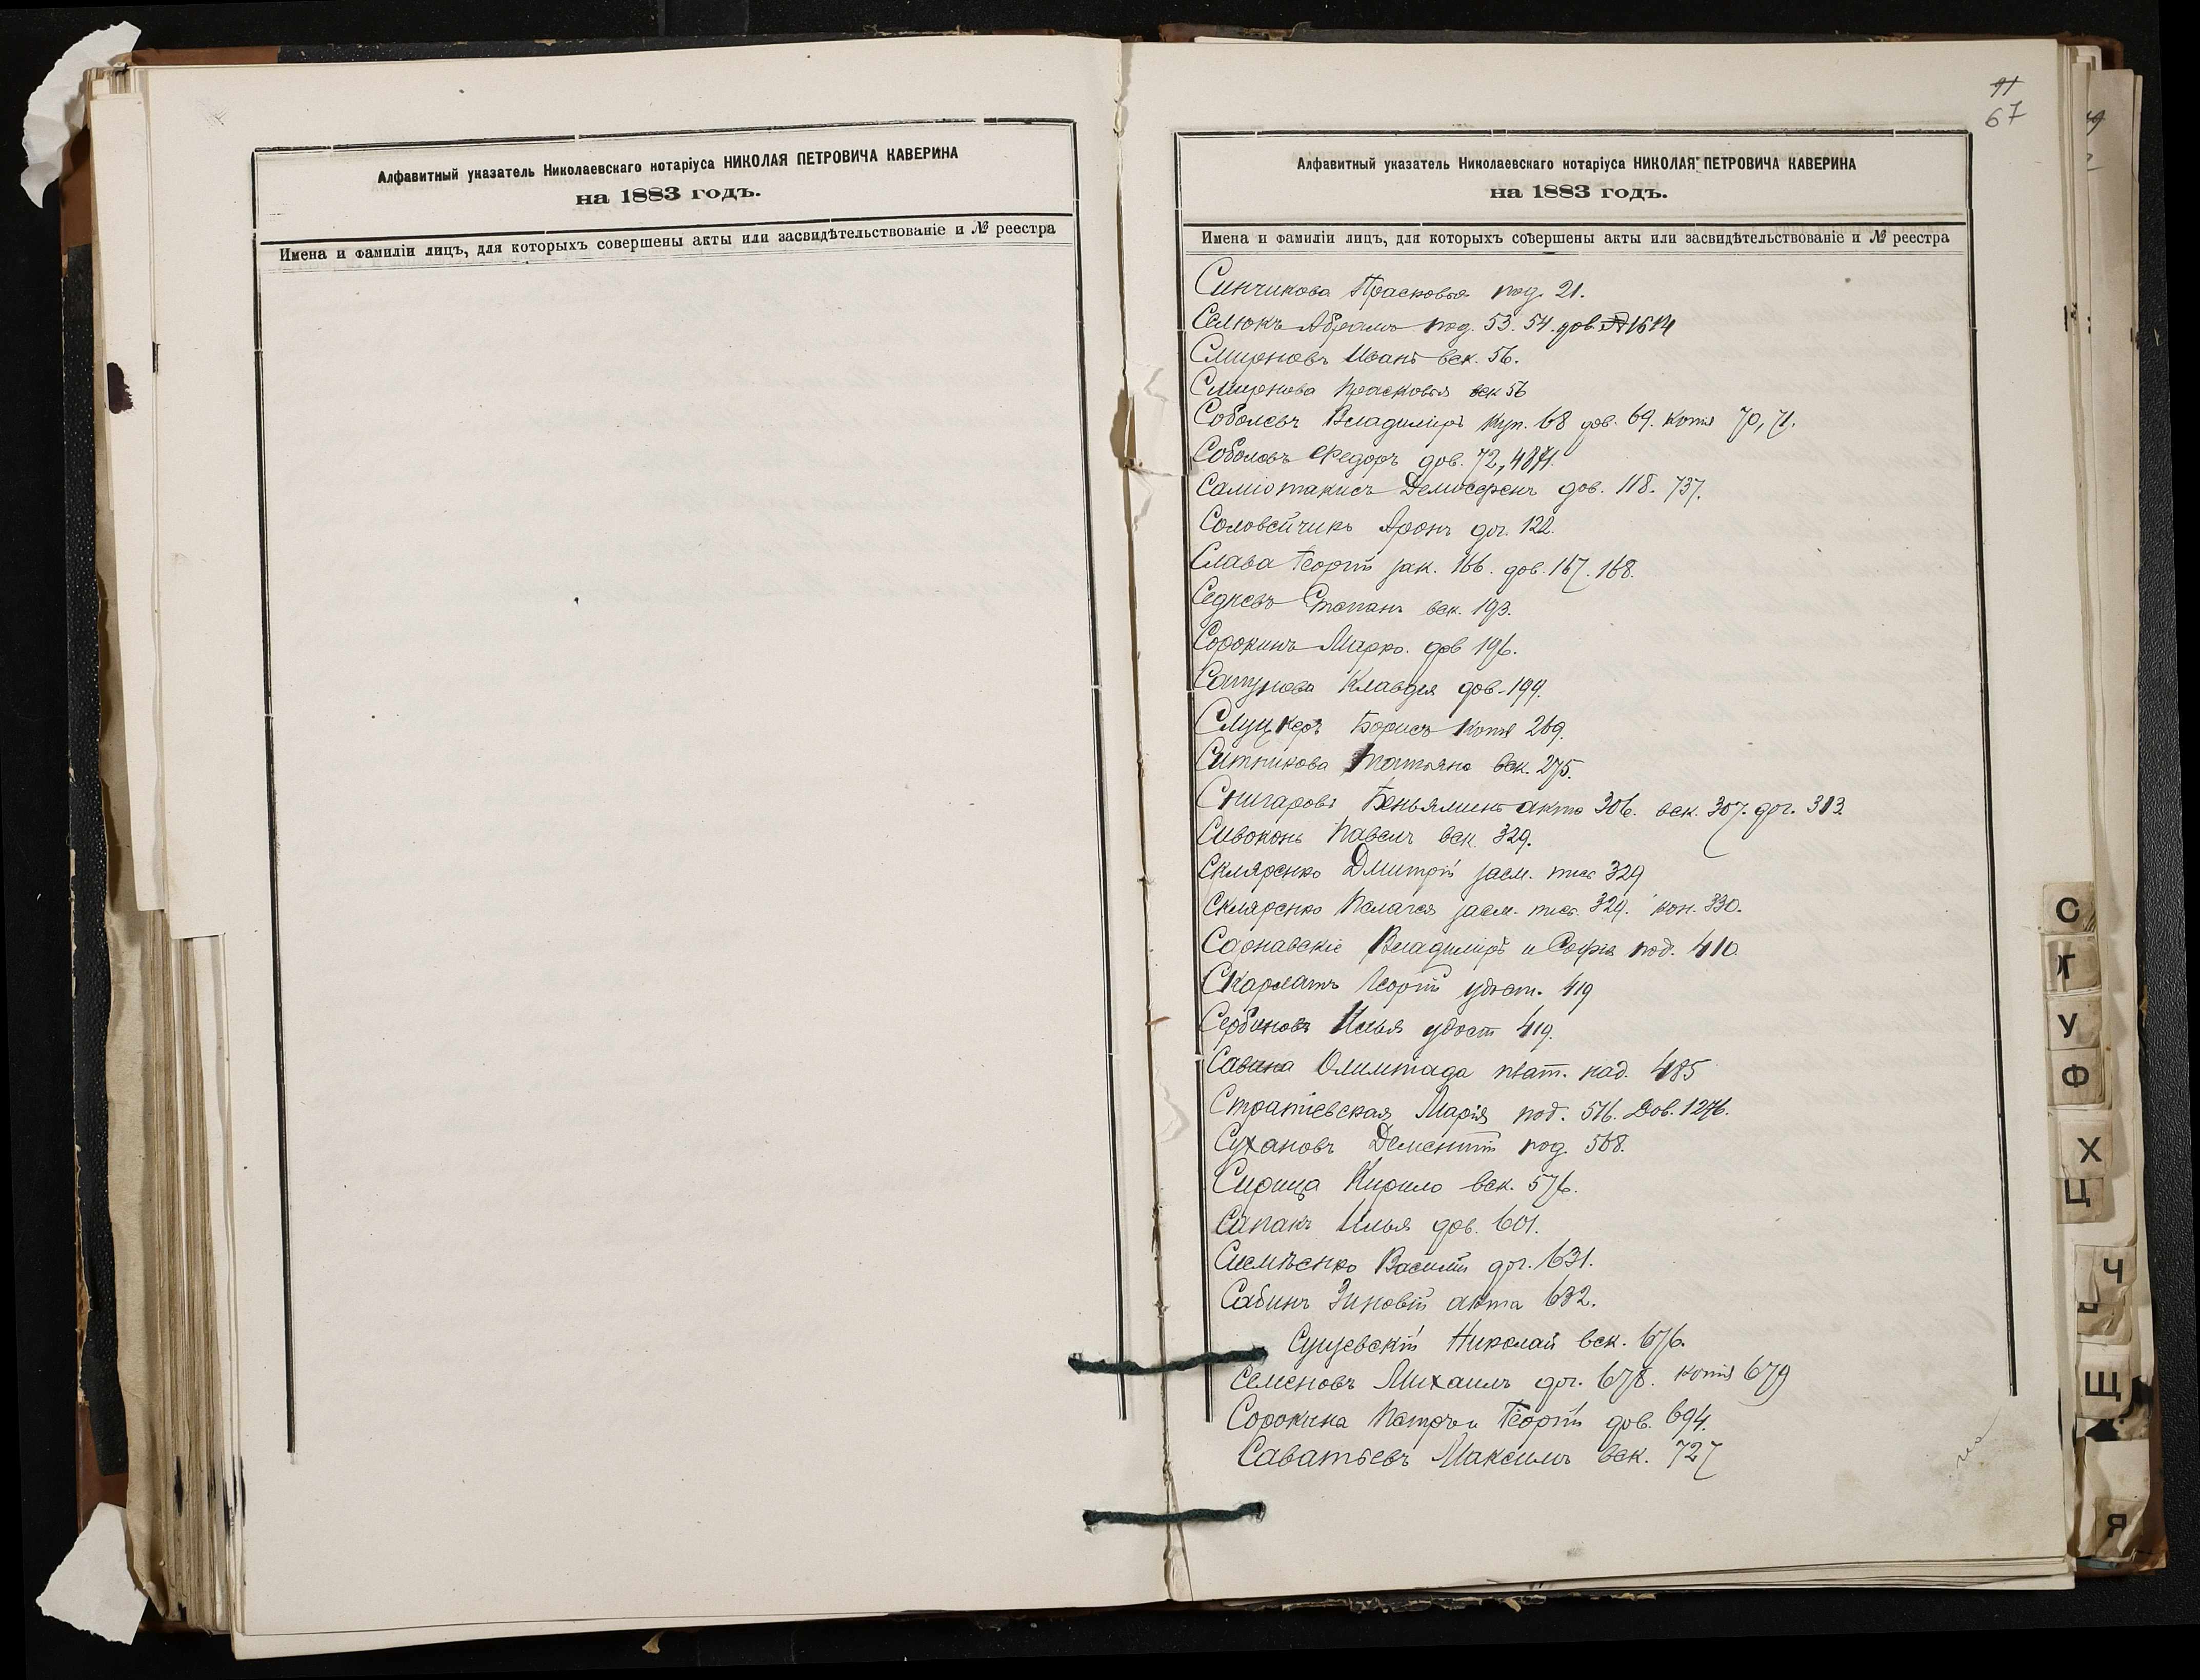 Алфавитный указатель Николаевскаго нотаріуса НИКОЛАЯ ПЕТРОВИЧА КАВЕРИНА
на 1883 годъ.
Имена и фамиліи лицъ, для которыхъ совершены акты или засвидѣтельствованіе и № реестра
67
Алфавитный указатель Николаевскаго нотаріуса НИКОЛАЯ ПЕТРОВИЧА КАВЕРИНА
на 1883 годъ.
Имена и фамиліи лицъ, для которыхъ совершены акты или засвидѣтельствованіе и № реестра
Синчикова Прасковья под. 21.
Селюкъ Абрамъ под. 53. 54. дов. 1514
Смирновъ Иванъ век. 56.
Смирнова Прасковья век 56
Соболевъ Владиміръ куп. 68 дов. 69. копія 70, 71.
Соболевъ Федоръ дов. 72, 487
Саміотакисъ Демосфенъ дов. 118. 737.
Соловейчикъ Аронъ дог. 122.
Слава Георгій зак. 166. дов. 167. 168.
Седневъ Степанъ век. 193.
Сорокинъ Марко. дов 196.
Сатунова Клавдия дов. 199.
Слуцкеръ Борисъ копія 269.
Ситникова Татьяна век. 275.
Снигаровъ Беньяминъ акта 306. век. 307. дог. 313.
Сивоконь Павелъ век. 329.
Скляренко Дмитрій заем. пис 329
Скляренко Пелагея заем. пис. 329. коп. 330.
Сарнавскіе Владиміръ и Софія под. 410.
Скарлатъ Георгій удост. 419
Сербиновъ Илья удост 419.
Савина Олимпіада плат. под. 485
Стратіевская Марія под. 516. Дов. 1276.
Сухановъ Дементій под. 568.
Сирица Кирило век. 576.
Сапакъ Илья дов. 601.
Василій дог. 631.
Сабинъ Зиновій акта 632.
Сущевскій Николай век. 676.
Семеновъ Михаилъ дог. 678. копія 679
Сорокина Петръ и Георгій дов. 694.
Саватѣевъ Максимъ век. 727
С
Т
У
Ф
Х
Ц
Ч
Щ
Я